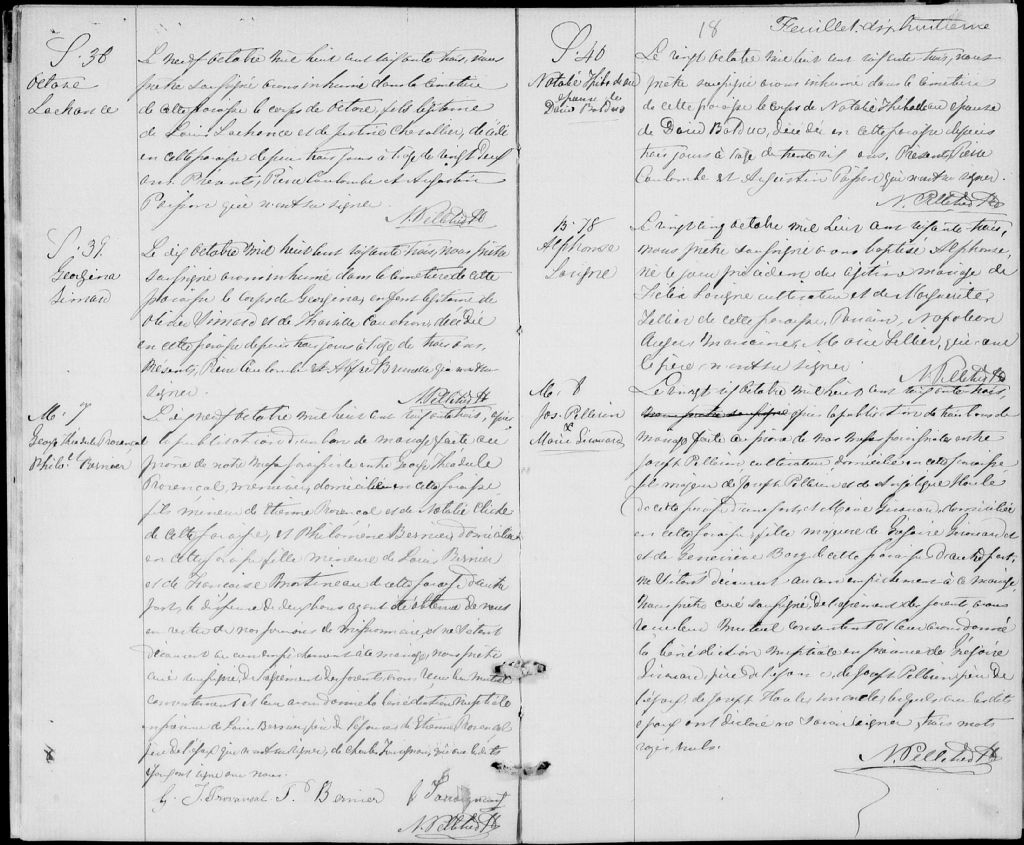 S. 38
Octave
Lachance
Le neuf octobre mil huit cent soixante trois, nous
prêtre soussigné avons inhumé dans le cimetière
de cette paroisse le corps de Octave, fils légitime
de Louis Lachance et de Justine Chevallier, décédé
en cette paroisse depuis trois jours à l'âge de vingt deux
ans. Présents, Pierre Coulombe et Augustin
Poisson qui n'ont su signer.
N. Pelletier Ptr
S. 39.
Georgina
Simard
Le dix octobre mil huit cent soixante trois, nous prêtre
soussigné avons inhumé dans le cimetière de cette
paroisse le corps de Georgina, enfant légitime de
Simard et de Cauchon, décédée
en cette paroisse depuis trois jours à l'âge de trois ans.
Présents, Pierre Coulombe et Alfred Brunelle qui n'ont su
signer.
N. Pelletier Ptr
M. 7
George Théodule Provençal
&
Phil. Bernier
Le dix neuf octobre mil huit cent soixante trois, après
la publication d'un ban de mariage faite au
prône de notre messe paroissiale entre George Théodule
Provençal, menuisier, domicilié en cette paroisse
fils mineur de Etienne Provençal et de Natalie Cliche
de cette paroisse, et Philomène Bernier, domiciliée
en cette paroisse fille mineure de Louis Bernier
et de Françoise Martineau de cette paroisse d'autre
part, la dispense de deux bans ayant été obtenue de nous
en vertu de nos pouvoirs de missionnaire, et ne s'étant
découvert aucun empêchement à ce mariage, nous prêtre
curé soussigné, de l'agrément des parents avons reçu leur mutuel
consentement et leur avons donné la bénédiction nuptiale
en présence de Louis Bernier, père de l'épouse de Etienne Provençal
père de l'époux qui n'ont su signer, de Charles qui avec les dits
époux ont signé avec nous.
G. T. Provencal P. Bernier
N. Pelletier Ptr
18 Feuillet dixhuitième
S. 40
Natalie Thibodeau
épouse de
David Bolduc
Le vingt octobre mil huit cent soixante trois, nous
prêtre soussigné avons inhumé dans le cimetière
de cette paroisse le corps de Natalie Thibodeau épouse
de David Bolduc, décédée en cette paroisse depuis
trois jours à l'âge de trente six ans. Présents, Pierre
Coulombe et Augustin Poisson qui n'ont su signer.
N. Pelletier Ptr
B. 78
Alphonse
Lavigne
Le vingt cinq octobre mil huit cent soixante trois,
nous prêtre soussigné avons baptisé Alphonse,
né le jour précédent du légitime mariage de
Félix Lavigne cultivateur et de Marguerite
Tellier de cette paroisse. Parrain, Napoléon
Marraine, Marie Tellier, qui avec
le père n'ont su signer
N. Pelletier Ptr
M. 8
Jos. Pellerin
&
Marie Simard
Le vingt six octobre mil huit cent soixante trois,
nous prêtre soussigné après la publication de trois bans de
mariage faite au prône de nos messes paroissiales entre
Joseph Pellerin cultivateur domicilié en cette paroisse
fils majeur de Joseph Pellerin et de Angélique Houle
de cette paroisse d'une part, et Marie Simard, domiciliée
en cette paroisse, fille majeure de Grégoire Simard et
et de Geneviève de cette paroisse d'autre part,
ne s'étant découvert aucun empêchement à ce mariage,
nous prêtre curé soussigné, de l'agrément des parents avons
reçu leur mutuel consentement et leur avons donné
la bénédiction nuptiale en présence de Grégoire
Simard, père de l'épouse, de Joseph Pellerin père de
l'époux, de Joseph Houle, lesquels avec les dits
époux ont déclaré ne savoir signer, trois mots
rayés, nuls.
N. Pelletier Ptr